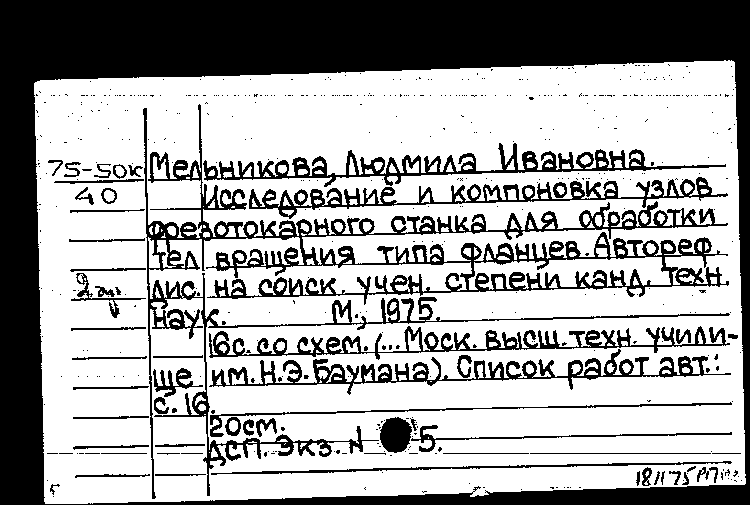 75-50к Мельникова, Людмила Ивановна.
40 Исследование и компоновка узлов
фрезотокарного станка для обработки
тел вращения типа фланцев. Автореф.
дис. на соиск. учен. степени канд. техн.
наук. М., 1975.
16с. со схем. (... Моск. высш. техн. учили-
ще им. Н.Э. Баумана). Список работ авт.:
с. 16.
20см.
ДСП. Экз. N 5.
18/I 75